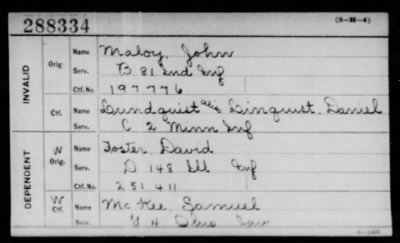 288334
(3-H-4)
INVALID
Orig.
Name Maloy, John
Serv. B 81 Ind Inf
Ctf. No. 197776
Ctf.
Name Lundquist alis Linquist, Daniel
Serv. C 2 Minn Inf
DEPENDENT
W Orig.
Name Foster, David
Serv. D 148 Ill Inf
Ctf. No. 251411
W Ctf.
Name McKee, Samuel
Serv. 4 Ohio Cav